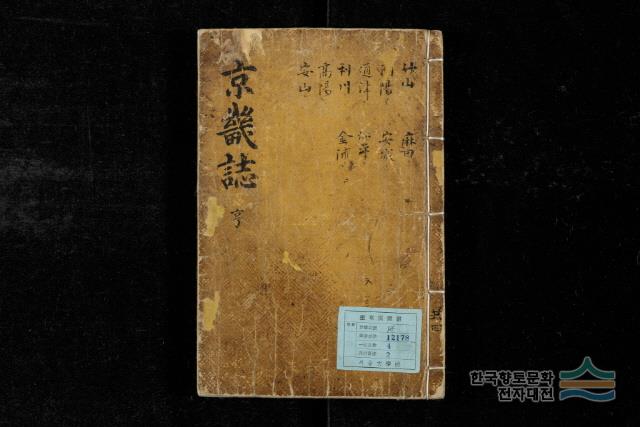 京畿誌 亨
竹山 麻田
陽 安
通津
利川 金浦
高陽
安山
奎章閣圖書
12178
4
2
서울大學校
共四
한국향토문화
전자대전